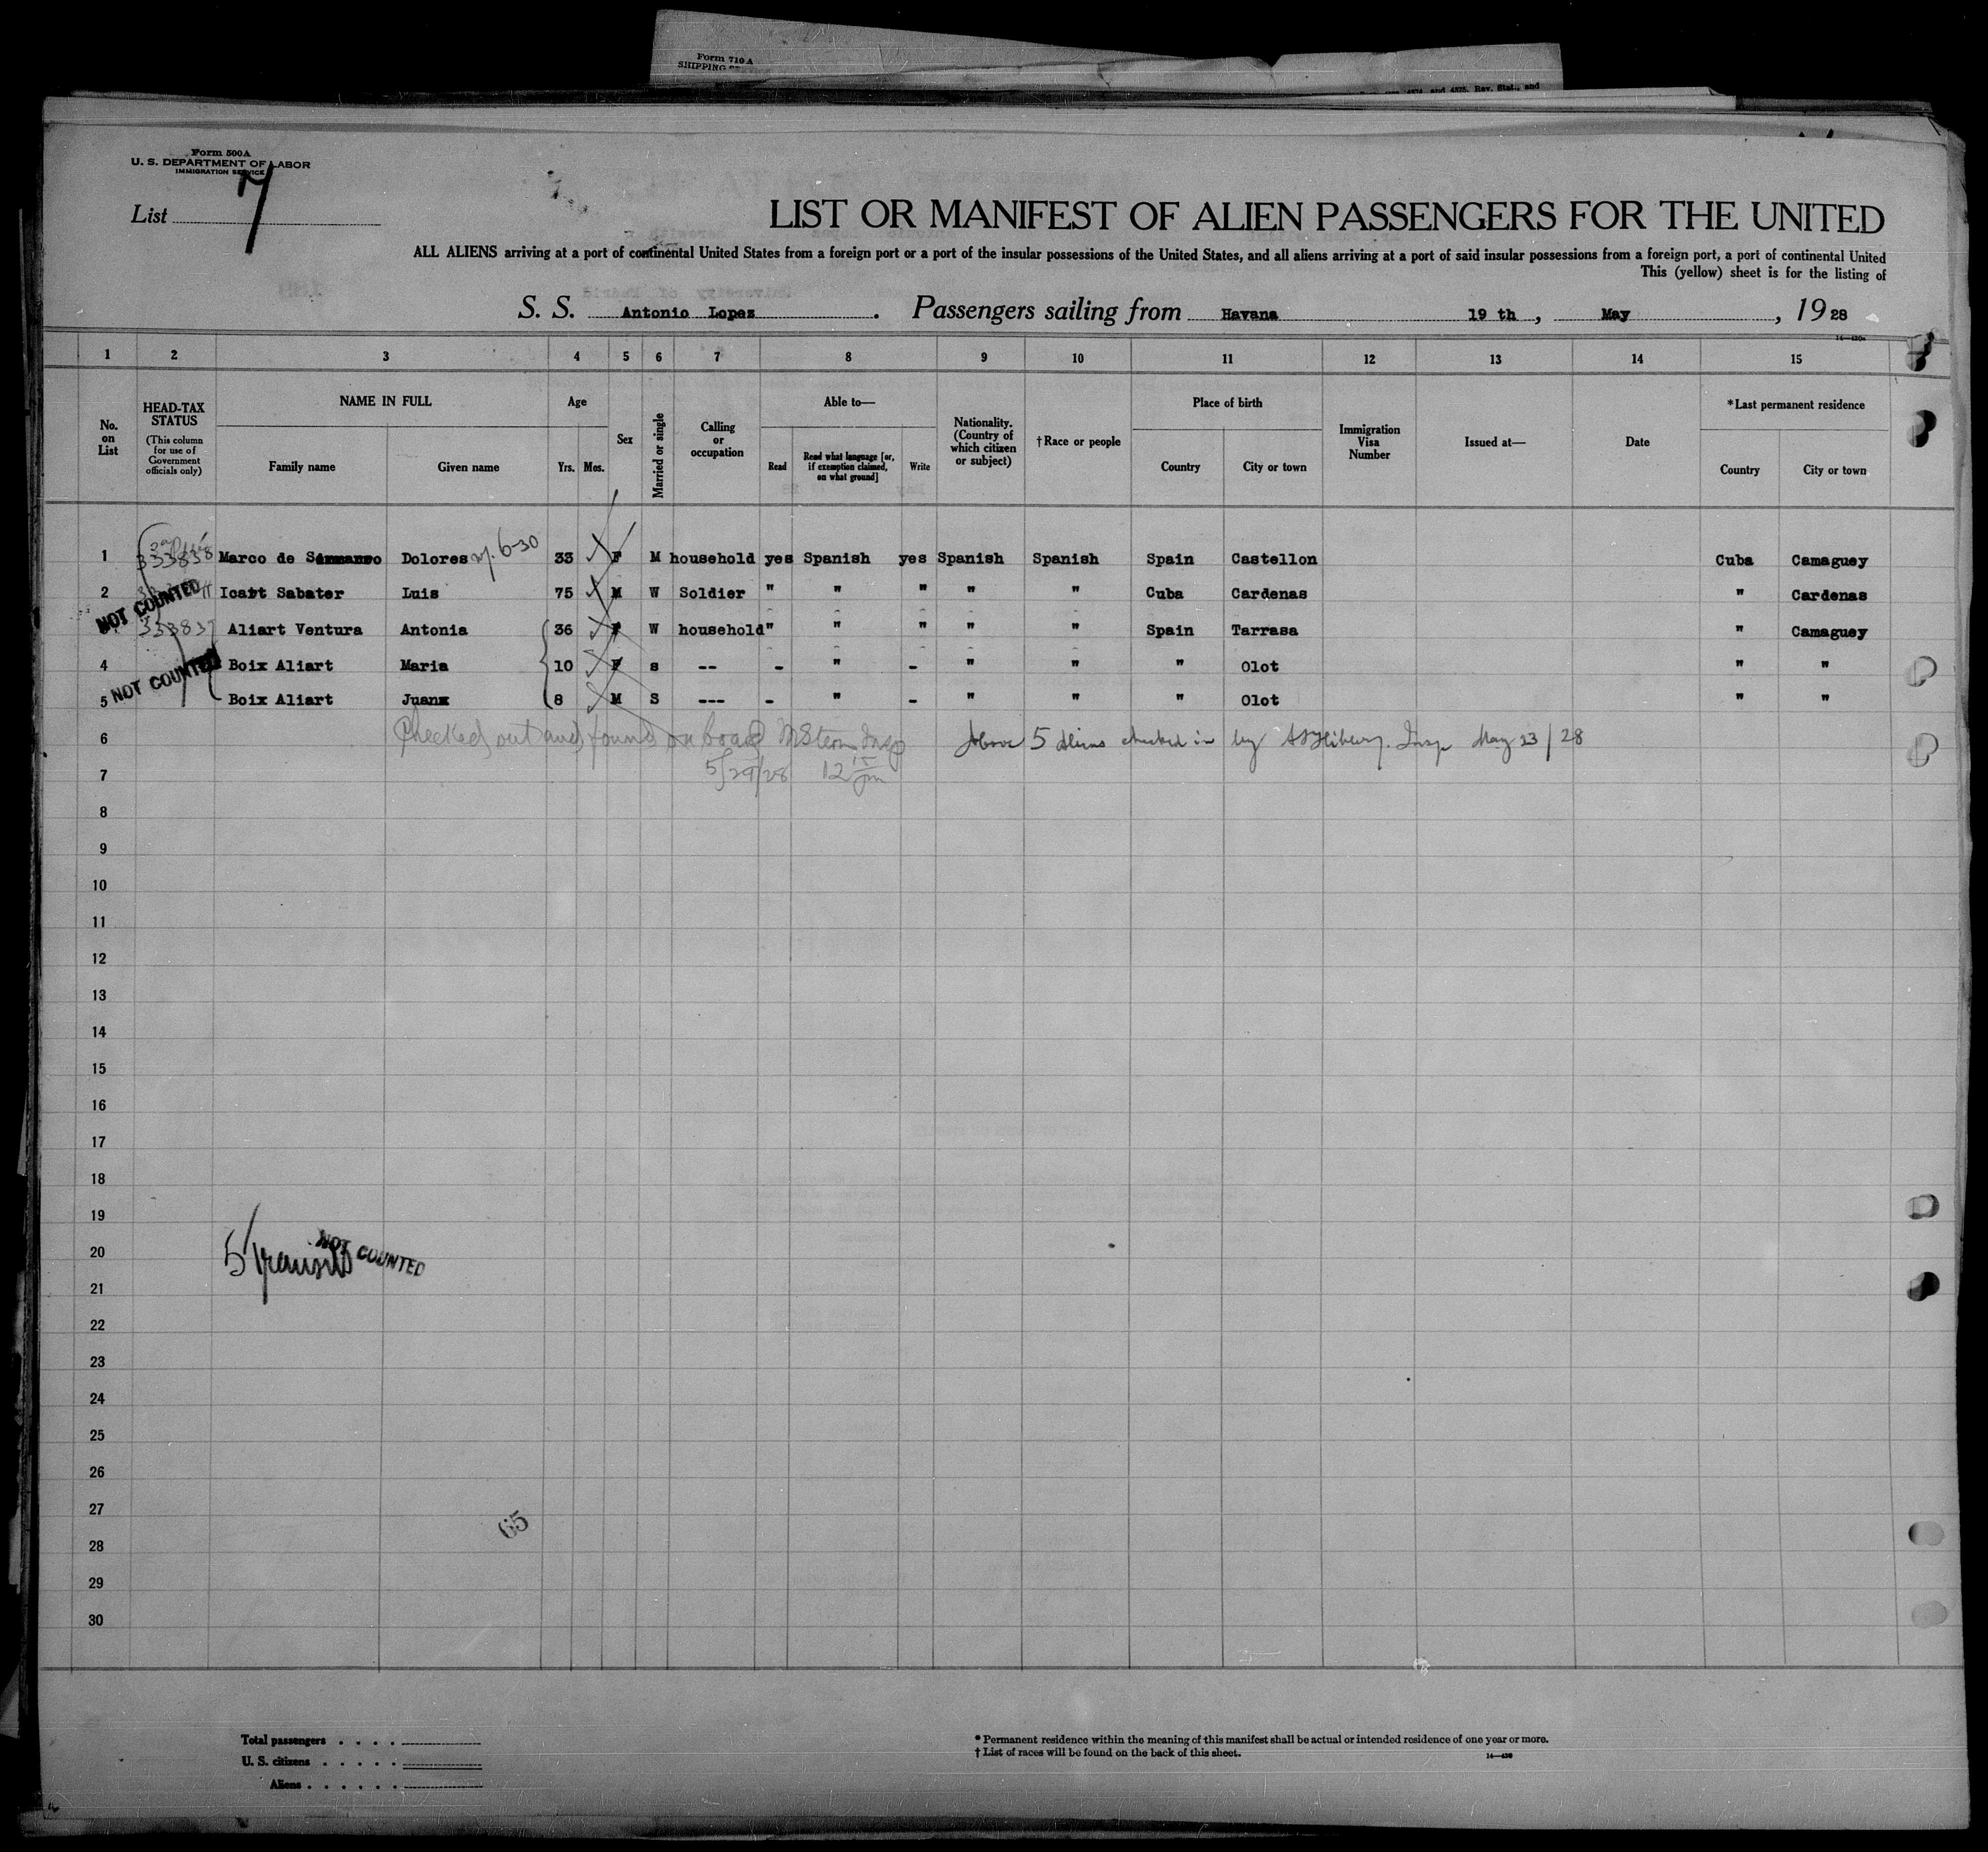 Form 710 A
SHIPPING
4574, and 4575, Rev. Stat., and
Form 500 A
U. S. DEPARTMENT OF LABOR
IMMIGRATION SERVICE
List 7
LIST OR MANIFEST OF ALIEN PASSENGERS FOR THE UNITED
ALL ALIENS arriving at a port of continental United States from a foreign port or a port of the insular possessions of the United States, and all aliens arriving at a port of said insular possessions from a foreign port, a port of continental United
This (yellow) sheet is for the listing of
S. S. Antonio Lopez. Passengers sailing from Havana 19 th, May, 1928
1 2 3 4 5 6 7 8 9 10 11 12 13 14 15
No. on List
HEAD-TAX STATUS (This column for use of Government officials only)
NAME IN FULL Family name Given name
Age Yrs. Mos.
Sex
Married or single
Calling or occupation
Able to— Read Read what language [or, if exemption claimed, on what ground] Write
Nationality. (Country of which citizen or subject)
†Race or people
Place of birth Country City or town
Immigration Visa Number
Issued at—
Date
*Last permanent residence Country City or town
1 333838 Marco de Dolores 6-30 33 F M household yes Spanish yes Spanish Spanish Spain Castellon Cuba Camaguey
2 Icart Sabater Luis 75 M W Soldier " " " " " Cuba Cardenas " Cardenas
NOT COUNTED
333837 Aliart Ventura Antonia 36 F W household " " " " " Spain Tarrasa " Camaguey
4 Boix Aliart Maria 10 F s -- - " - " " " Olot " "
NOT COUNTED
5 Boix Aliart Juan 8 M S --- - " - " " " Olot " "
6 Checked out and found on board MStern Insp Above 5 aliens checked in by Insp May 23/28
7 5/29/28 12 15 pm
8
9
10
11
12
13
14
15
16
17
18
19
20 5 Transits NOT COUNTED
21
22
23
24
25
26
27
65
28
29
30
Total passengers
U. S. citizens
Aliens
* Permanent residence within the meaning of this manifest shall be actual or intended residence of one year or more.
† List of races will be found on the back of this sheet.
14—430